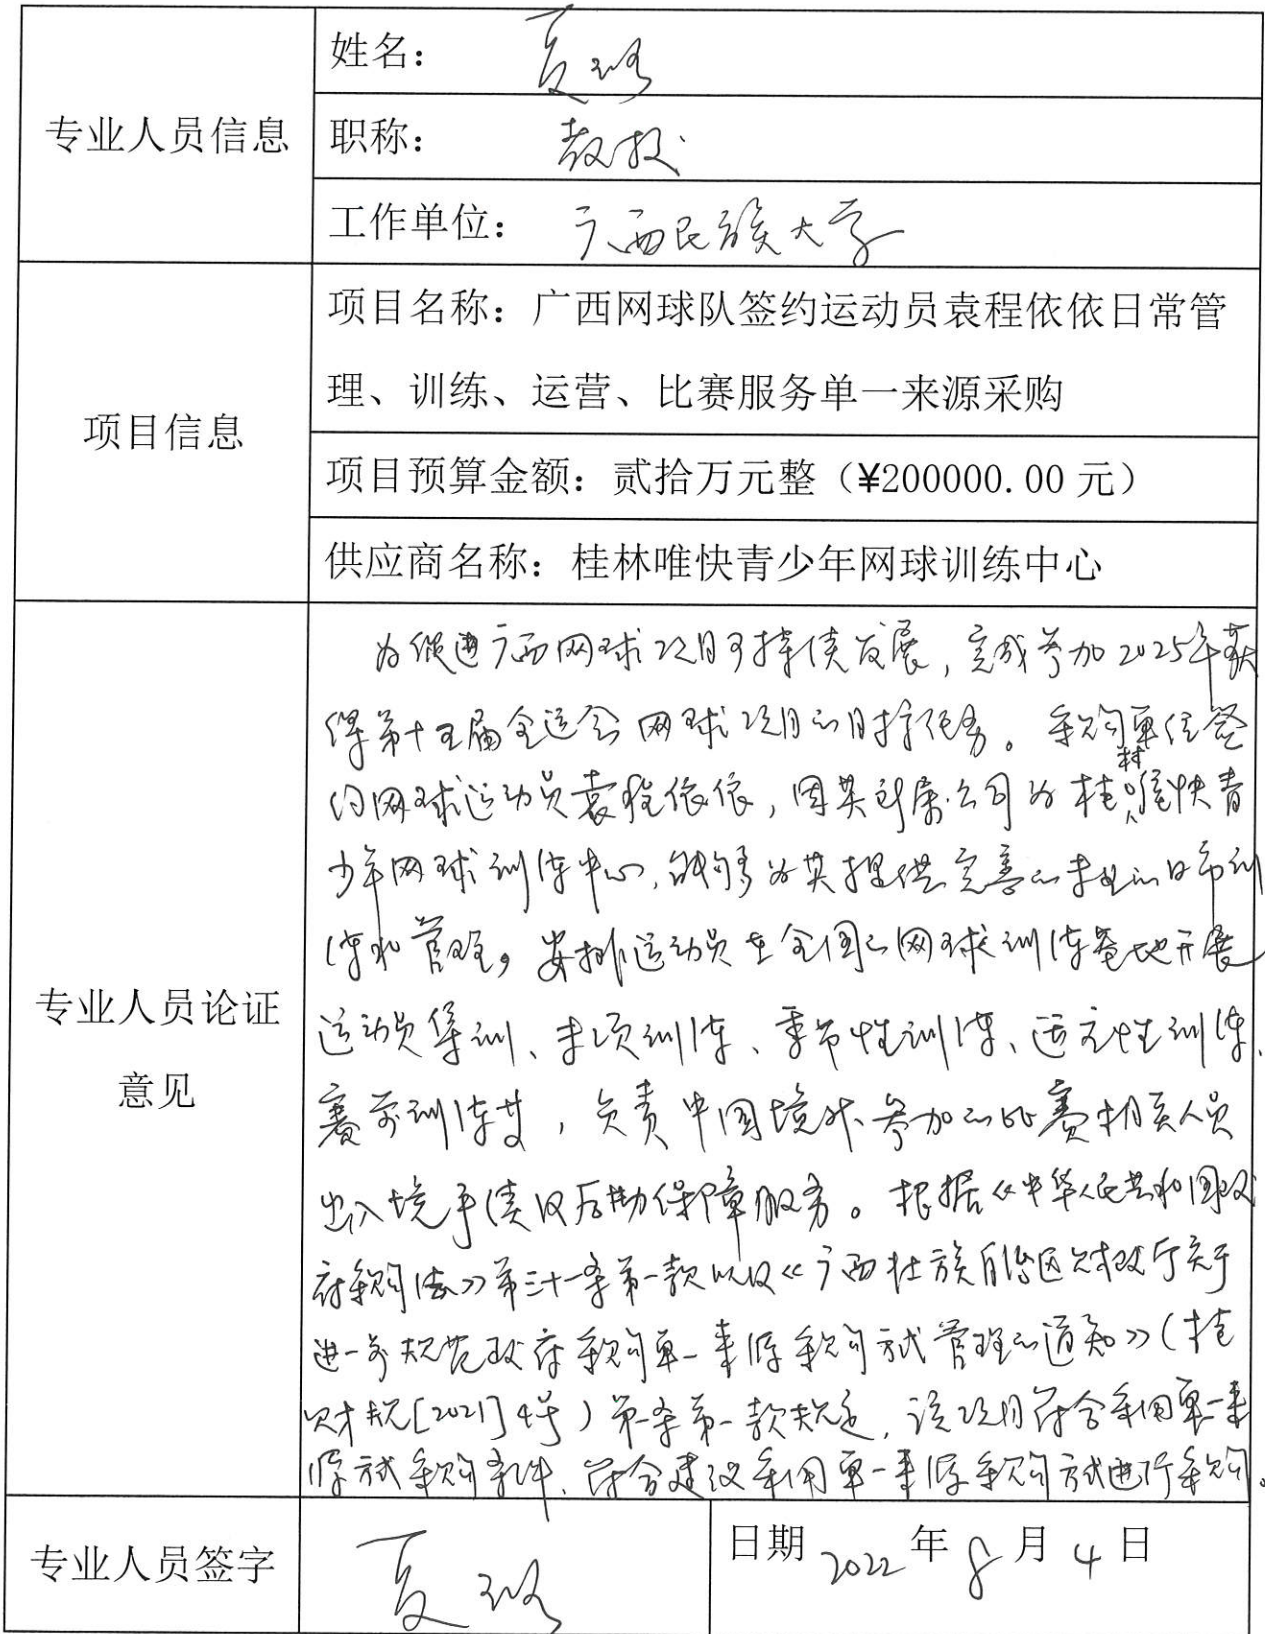 专业人员信息
姓名：夏璐
职称：教授
工作单位：广西民族大学
项目信息
项目名称：广西网球队签约运动员袁程依依日常管
理、训练、运营、比赛服务单一来源采购
项目预算金额：贰拾万元整（¥200000.00 元）
供应商名称：桂林唯快青少年网球训练中心
专业人员论证
意见
为促进广西网球项目可持续发展，完成参加2025年获
得第十五届全运会网球项目的目标任务。采购单位签
约网球运动员袁程依依，因其所属公司为桂林唯快青
少年网球训练中心，能够为其提供完善的专业的日常训
练和管理，安排运动员在全国的网球训练基地开展
运动员集训、专项训练、季节性训练、适应性训练、
赛前训练等，负责中国境外参加的比赛相关人员
出入境手续及后勤保障服务。根据《中华人民共和国政
府采购法》第三十一条第一款以及《广西壮族自治区财政厅关于
进一步规范政府采购单一来源采购方式管理的通知》（桂
财规[2021]4号）第一条第一款规定，该项目符合采用单一来
源方式采购条件，符合建议采用单一来源采购方式进行采购。
专业人员签字
夏璐
日期 2022 年 8 月 4 日